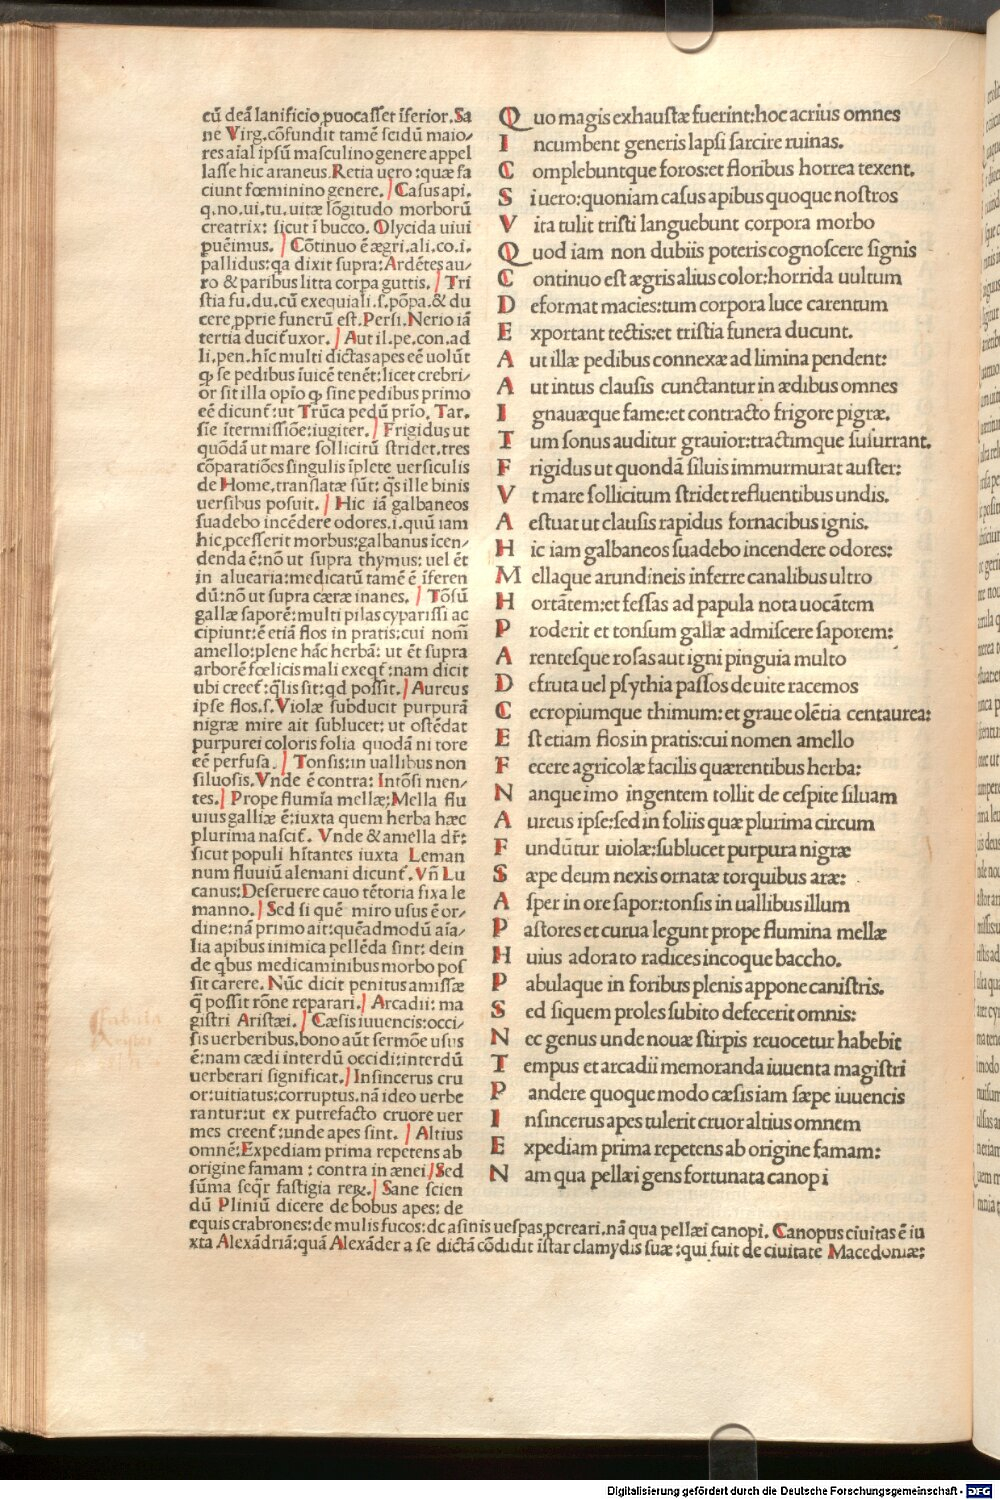 cū deā lanificio ꝓuocasset īferior. Sa
ne Virg. cōfundit tamē scidū maio/
res aīal ipsū masculino genere appel
lasse hic araneus. Retia uero: quæ fa
ciunt fœminino genere. Casus api.
q. no. ui. tu. uitæ lōgitudo morborū
creatrix: sicut ī bucco. Olycida uiui
puēimus. Cōtinuo ē ægri. ali. co. i.
pallidus: qa dixit supra: Ardētes au/
ro & paribus litta corpa guttis. Tri
stia fu. du. cū exequiali. s. pōpa. & du
cere ꝓprie funerū est. Persi. Nerio iā
tertia duciť uxor. Aut il. pe. con. ad
li. pen. hīc multi dictas apes eē uolūt
ꝙ se pedibus īuicē tenēt: licet crebri/
or sit illa opīo ꝙ sine pedibus primo
eē dicunť: ut Trūca pedū prīo. Tar.
sie ītermissiōe: iugiter. Frigidus ut
quōdā ut mare sollicitū stridet. tres
cōparatiōes singulis īplete uersiculis
de Home. translatæ sūt: qs ille binis
uersibus posuit. Hic iā galbaneos
suadebo incēdere odores. i. quū iam
hic ꝓcesserit morbus: galbanus īcen/
denda ē: nō ut supra thymus: uel ēt
in aluearia: medicatū tamē ē īferen
dū: nō ut supra cæræ inanes. Tōsū
gallæ saporē: multi pilas cyparissi ac
cipiunt: ē etiā flos in pratis: cui nom̄
amello: plene hāc herbā: ut ēt supra
arborē fœlicis mali exeqť: nam dicit
ubi creeť: qlis sit: qd possit. Aureus
ipse flos. s. Violæ subducit purpurā
nigræ mire ait sublucet: ut ostēdat
purpurei coloris folia quodā ni tore
eē perfusa. Tonsis: in uallibus non
siluosis. Vnde ē contra: Intōsi men/
tes. Prope flumīa mellæ: Mella flu
uius galliæ ē: iuxta quem herba hæc
plurima nasciť. Vnde & amella dr̄:
sicut populi hītantes iuxta Leman
num fluuiū alemani dicunť. Vn̄ Lu
canus: Deseruere cauo tētoria fixa le
manno. Sed si quē miro usus ē or/
dine: nā primo ait: quēadmodū aīa/
lia apibus inimica pellēda sint: dein
de qbus medicaminibus morbo pos
sit carere. Nūc dicit penitus amissæ
q̄ possit rōne reparari. Arcadii: ma
gistri Aristæi. Cæsis iuuencis: occi/
sis uerberibus. bono aūt sermōe usus
ē: nam cædi interdū occidi: interdū
uerberari significat. Insincerus cru
or: uitiatus: corruptus. nā ideo uerbe
rantur: ut ex putrefacto cruore uer
mes creenť: unde apes sint. Altius
omnē: Expediam prima repetens ab
origine famam: contra in ænei. Sed
sūma seqr̄ fastigia reꝝ. Sane scien
dū Pliniū dicere de bobus apes: de
equis crabrones: de mulis fucos: de asinis uespas ꝓcreari. nā qua pellæi canopi. Canopus ciuitas ē iu
xta Alexādriā: quā Alexāder a se dictā cōdidit īstar clamydis suæ: qui fuit de ciuitate Macedoniæ:
Quo magis exhaustæ fuerint: hoc acrius omnes
Incumbent generis lapsi sarcire ruinas.
Complebuntque foros: et floribus horrea texent.
Si uero: quoniam casus apibus quoque nostros
Vita tulit tristi languebunt corpora morbo
Quod iam non dubiis poteris cognoscere signis
Continuo est ægris alius color: horrida uultum
Deformat macies: tum corpora luce carentum
Exportant tectis: et tristia funera ducunt.
Aut illæ pedibus connexæ ad limina pendent:
Aut intus clausis cunctantur in ædibus omnes
Ignauæque fame: et contracto frigore pigræ.
Tum sonus auditur grauior: tractimque susurrant.
Frigidus ut quondā siluis immurmurat auster:
Vt mare sollicitum stridet refluentibus undis.
Aestuat ut clausis rapidus fornacibus ignis.
Hic iam galbaneos suadebo incendere odores:
Mellaque arundineis inferre canalibus ultro
Hortātem: et fessas ad papula nota uocātem
Proderit et tonsum gallæ admiscere saporem:
Arentesque rosas aut igni pinguia multo
Defruta uel psythia passos de uite racemos
Cecropiumque thimum: et graue olētia centaurea:
Est etiam flos in pratis: cui nomen amello
Fecere agricolæ facilis quærentibus herba:
Nanque imo ingentem tollit de cespite siluam
Aureus ipse: sed in foliis quæ plurima circum
Fundūtur uiolæ: sublucet purpura nigræ
Sæpe deum nexis ornatæ torquibus aræ:
Asper in ore sapor: tonsis in uallibus illum
Pastores et curua legunt prope flumina mellæ
Huius adorato radices incoque baccho.
Pabulaque in foribus plenis appone canistris.
Sed siquem proles subito defecerit omnis:
Nec genus unde nouæ stirpis reuocetur habebit
Tempus et arcadii memoranda iuuenta magistri
Pandere quoque modo cæsis iam sæpe iuuencis
Insincerus apes tulerit cruor altius omnem
Expediam prima repetens ab origine famam:
Nam qua pellæi gens fortunata canopi
Digitalisierung gefördert durch die Deutsche Forschungsgemeinschaft - DFG